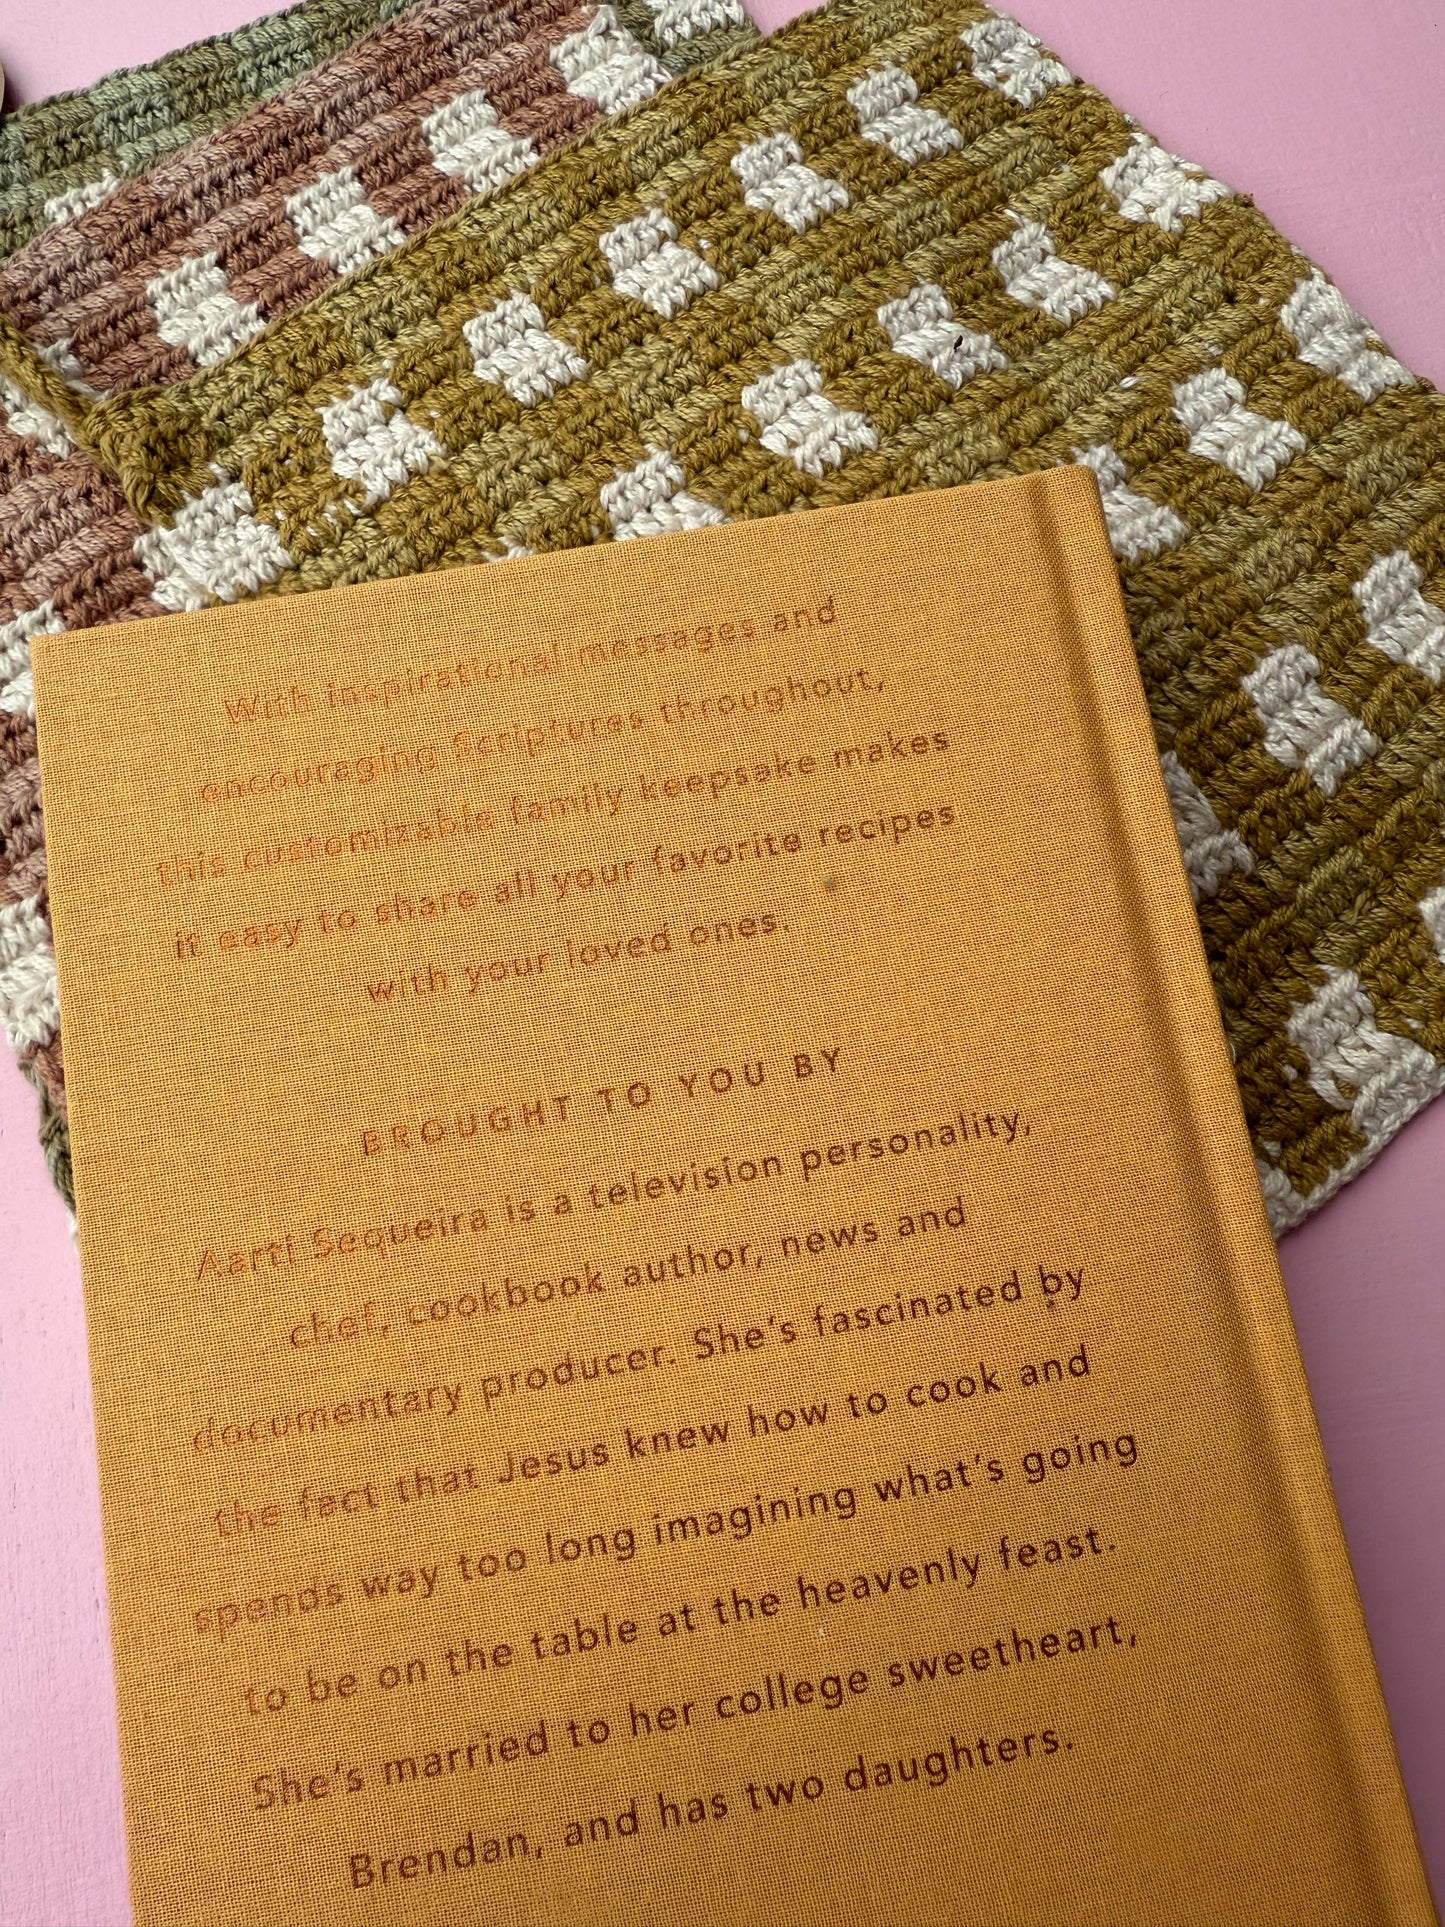 With inspirational messages and
encouraging Scriptures throughout,
this customizable family keepsake makes
it easy to share all your favorite recipes
with your loved ones.
BROUGHT TO YOU BY
Aarti Sequeira is a television personality,
chef, cookbook author, news and
documentary producer. She's fascinated by
the fact that Jesus knew how to cook and
spends way too long imagining what's going
to be on the table at the heavenly feast.
She's married to her college sweetheart,
Brendan, and has two daughters.